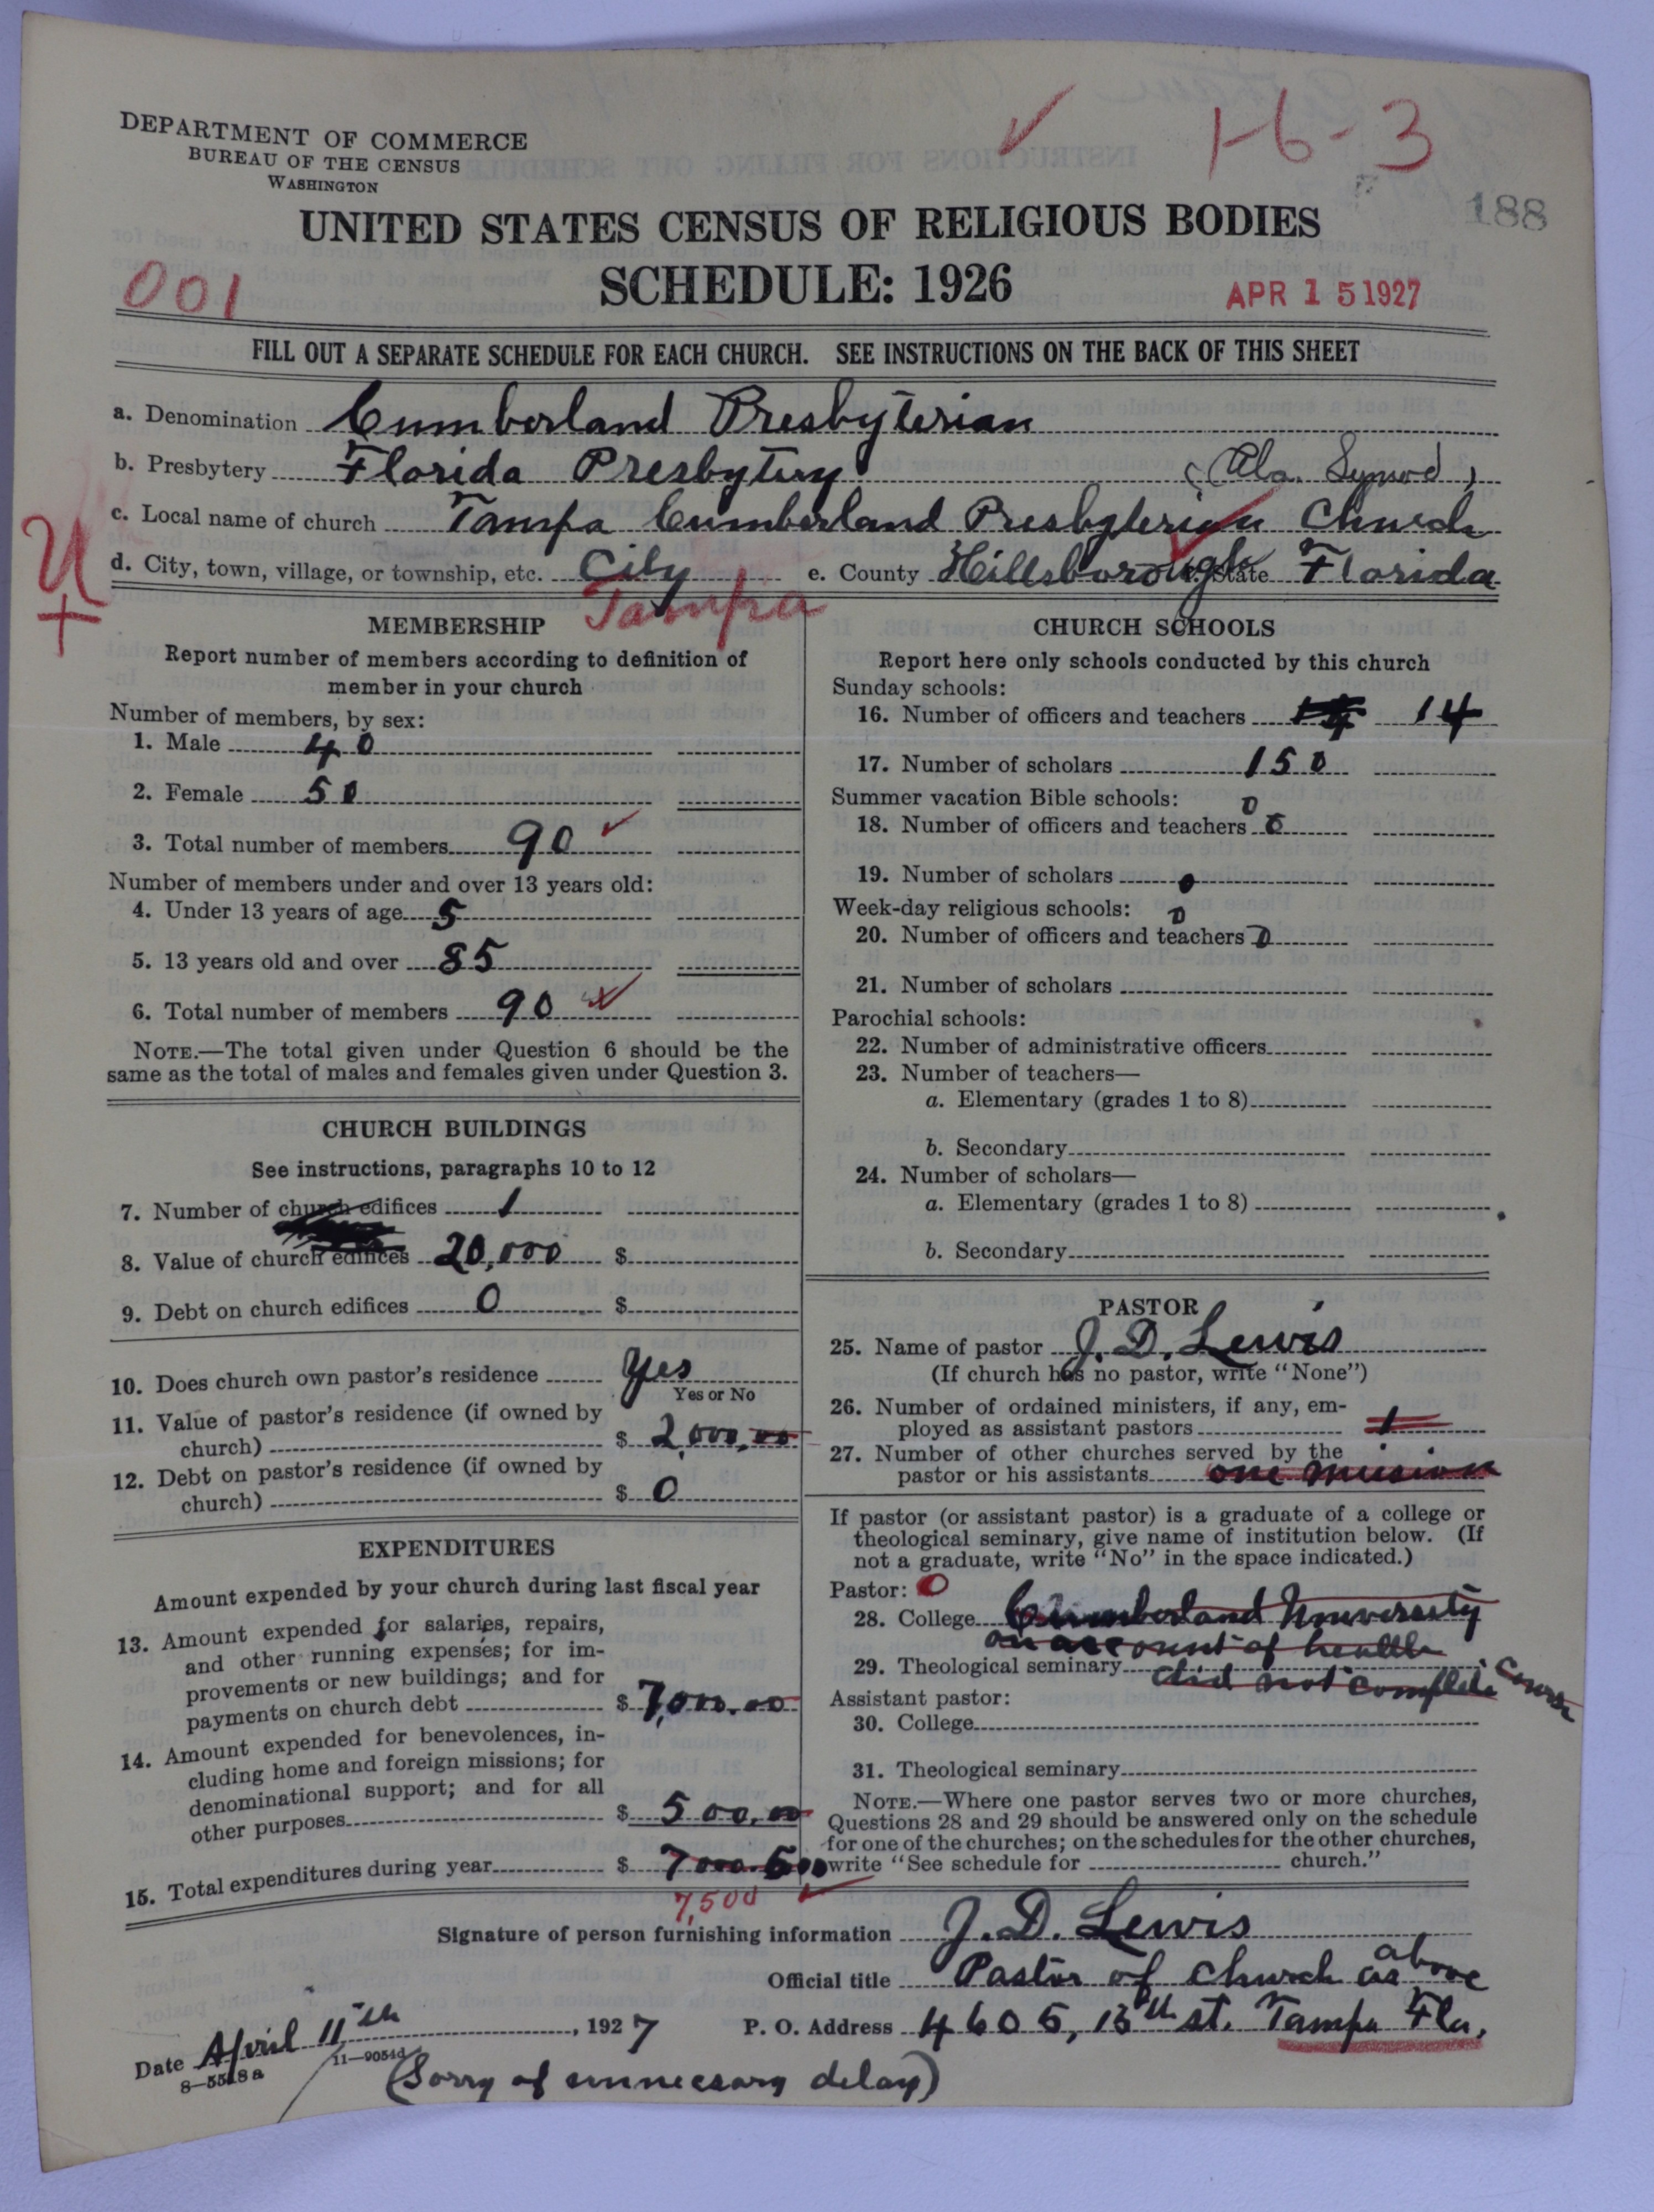 DEPARTMENT OF COMMERCE
BUREAU OF THE CENSUS
WASHINGTON
1-6-3
188
UNITED STATES CENSUS OF RELIGIOUS BODIES
SCHEDULE: 1926
001
APR 15 1927
FILL OUT A SEPARATE SCHEDULE FOR EACH CHURCH. SEE INSTRUCTIONS ON THE BACK OF THIS SHEET
a. Denomination Cumberland Presbyterian
b. Presbytery Florida Presbytery (Ala. Synod)
c. Local name of church Tampa Cumberland Presbyterian Church
U
d. City, town, village, or township, etc. City e. County Hillsborough State Florida
Tampa
MEMBERSHIP
Report number of members according to definition of
member in your church
Number of members, by sex:
1. Male 40
2. Female 50
3. Total number of members 90
Number of members under and over 13 years old:
4. Under 13 years of age 5
5. 13 years old and over 85
6. Total number of members 90
NOTE.—The total given under Question 6 should be the
same as the total of males and females given under Question 3.
CHURCH BUILDINGS
See instructions, paragraphs 10 to 12
7. Number of church edifices 1
8. Value of church edifices 20,000 $
9. Debt on church edifices 0 $
10. Does church own pastor's residence Yes
Yes or No
11. Value of pastor's residence (if owned by
church) $ 2,000,00
12. Debt on pastor's residence (if owned by
church) $ 0
EXPENDITURES
Amount expended by your church during last fiscal year
13. Amount expended for salaries, repairs,
and other running expenses; for im-
provements or new buildings; and for
payments on church debt $ 7,000.00
14. Amount expended for benevolences, in-
cluding home and foreign missions; for
denominational support; and for all
other purposes $ 500.00
15. Total expenditures during year $ 7000.500
7,500
CHURCH SCHOOLS
Report here only schools conducted by this church
Sunday schools:
16. Number of officers and teachers 14 14
17. Number of scholars 150
Summer vacation Bible schools: 0
18. Number of officers and teachers 0
19. Number of scholars 0
Week-day religious schools: 0
20. Number of officers and teachers 0
21. Number of scholars
Parochial schools:
22. Number of administrative officers
23. Number of teachers—
a. Elementary (grades 1 to 8)
b. Secondary
24. Number of scholars—
a. Elementary (grades 1 to 8)
b. Secondary
PASTOR
25. Name of pastor J. D. Lewis
(If church has no pastor, write "None")
26. Number of ordained ministers, if any, em-
ployed as assistant pastors 1
27. Number of other churches served by the
pastor or his assistants one mission
If pastor (or assistant pastor) is a graduate of a college or
theological seminary, give name of institution below. (If
not a graduate, write "No" in the space indicated.)
Pastor: 0
28. College Cumberland University
on account of health
29. Theological seminary did not complete course
Assistant pastor:
30. College
31. Theological seminary
NOTE.—Where one pastor serves two or more churches,
Questions 28 and 29 should be answered only on the schedule
for one of the churches; on the schedules for the other churches,
write "See schedule for church."
Signature of person furnishing information J. D. Lewis
Official title Pastor of church as above
Date April 11th, 1927 P. O. Address 4605, 13th st. Tampa Fla.
8—5518a 11—9054d
(Sorry of unnecesary delay)